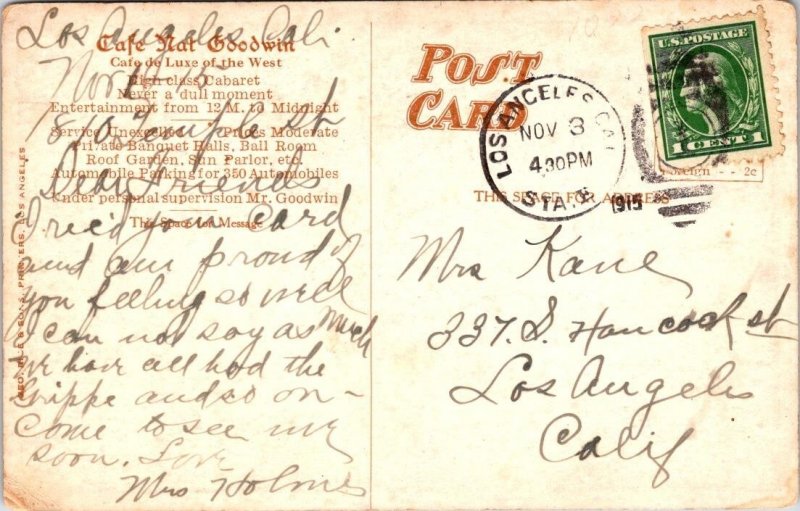 Los Angeles, Cali.
Cafe Nat Goodwin
Cafe de Luxe of the West
Nov.
High class Cabaret
Never a dull moment
Entertainment from 12 M. to Midnight
Temple st
Service Unexcelled Prices Moderate
Private Banquet Halls, Ball Room
Roof Garden, Sun Parlor, etc.
Automobile Parking for 350 Automobiles
Dear Friends
Under personal supervision Mr. Goodwin
This Space for Message
I rec'd your card
and am proud of
you feeling so well
I can not say as Much
We have all had the
Grippe and so on -
Come to see my
soon. Love
Mrs Holmes
GEO. RICE & SONS, PRINTERS, LOS ANGELES
POST
CARD
LOS ANGELES, CAL
NOV 3
4.30PM
1915
STA.
U.S. POSTAGE
1 CENT 1
Foreign - - 2c
THIS SPACE FOR ADDRESS
Mrs Kane
337. S. Hancock st
Los Angeles
Calif